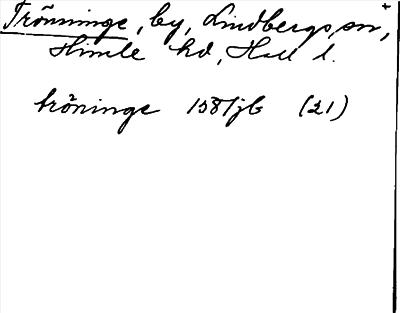 Trönninge, by, Lindbergs sn, +
Himle hd, Hall l.
tröninge 1581 jb (21)